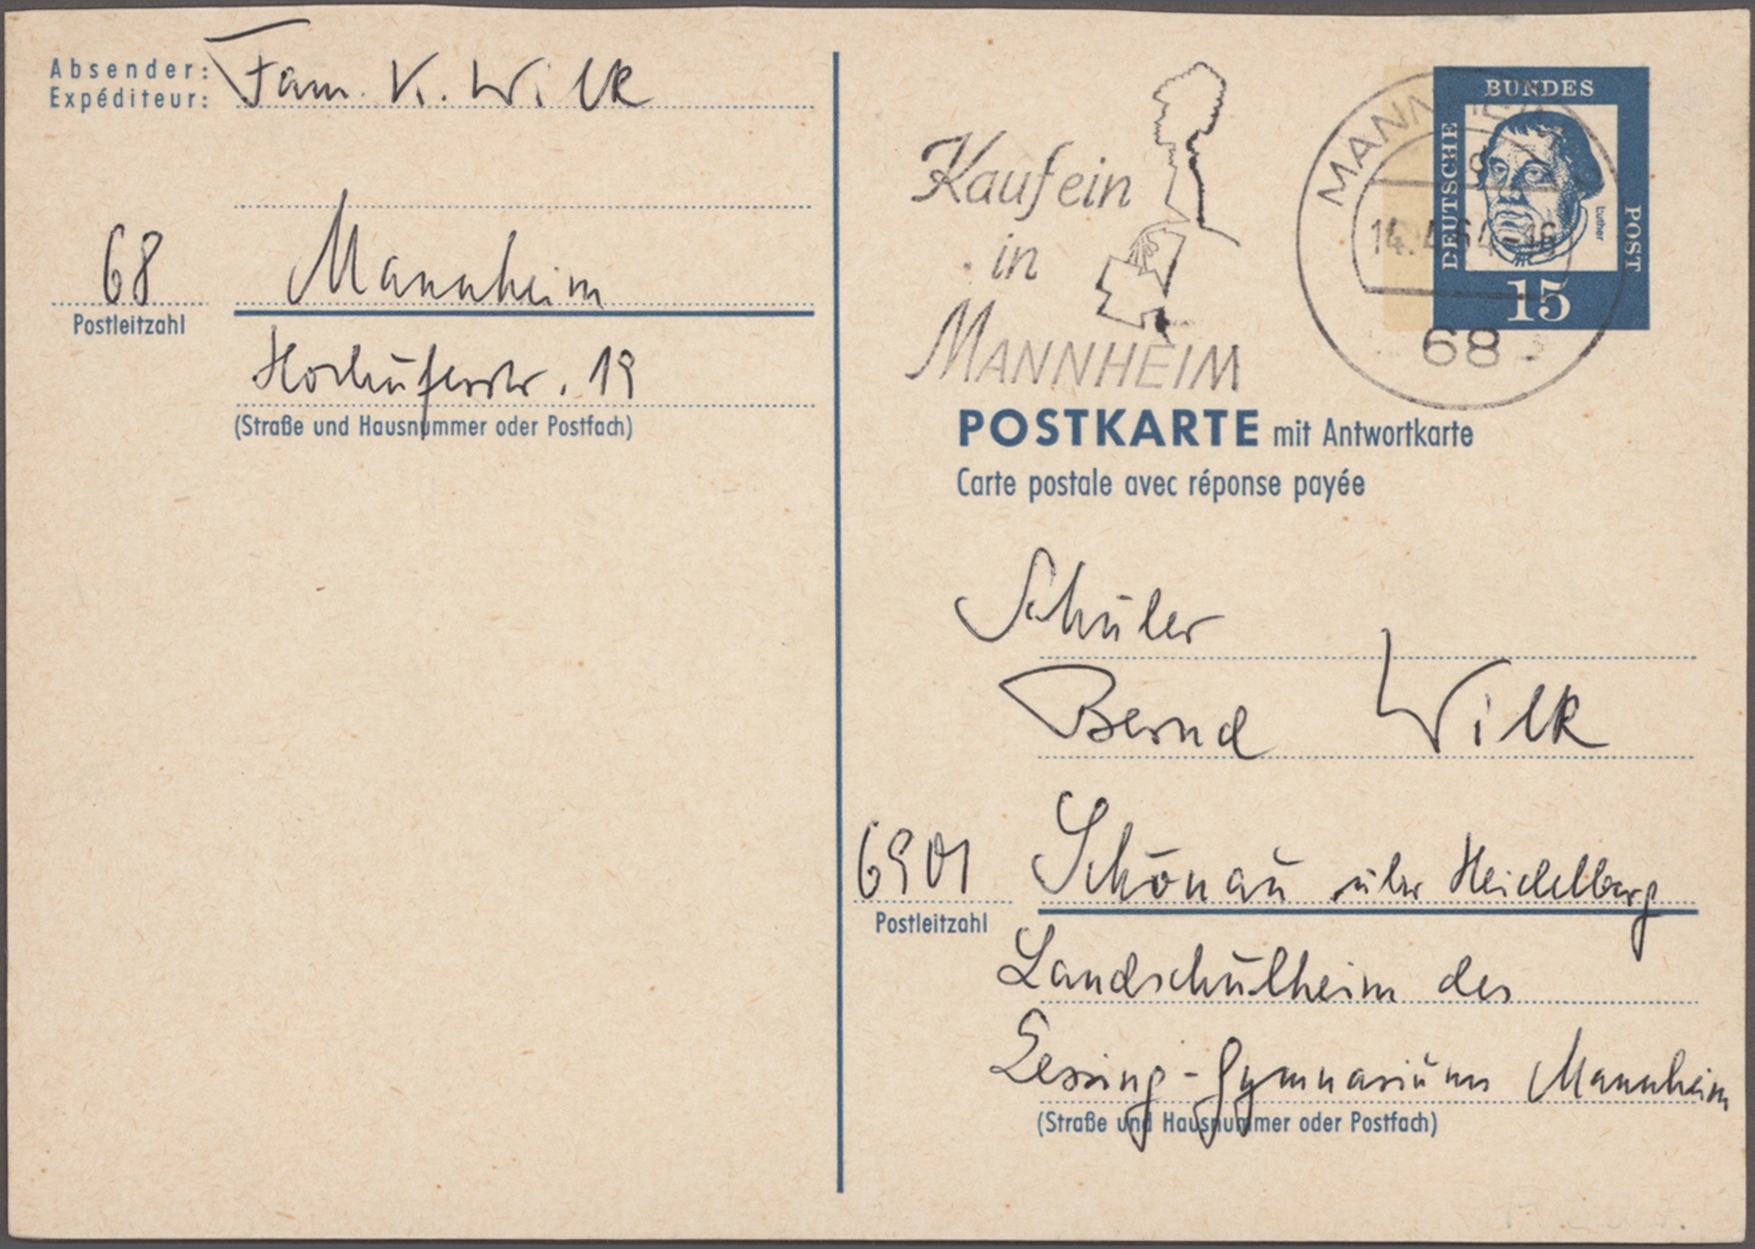 Absender:
Expéditeur:
Fam. K. Wilk
68
Mannheim
Postleitzahl
Hochuferstr. 19
(Straße und Hausnummer oder Postfach)
Kauf ein
in
MANNHEIM
MANNHEIM
14.4.64-16
68
BUNDES
DEUTSCHE
POST
Luther
15
POSTKARTE mit Antwortkarte
Carte postale avec réponse payée
Schüler
Bernd Wilk
6901
Schönau über Heidelberg
Postleitzahl
Landschulheim des
Lessing-Gymnasiums Mannheim
(Straße und Hausnummer oder Postfach)